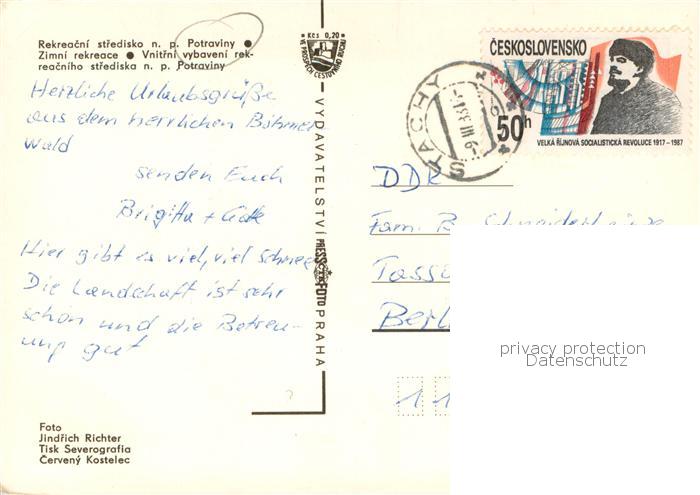 Rekreační středisko n. p. Potraviny ●
Zimní rekreace ● Vnitřní vybavení rek-
reačního střediska n. p. Potraviny
Herzliche Urlaubsgrüße
aus dem herrlichen Böhmer
wald
senden Euch
Brigitta +
Hier gibt es viel, viel Schnee
Die Landschaft ist sehr
schön und die Betreu-
ung gut
Foto
Jindřich Richter
Tisk Severografia
Červený Kostelec
Kčs 0,20
VE PROSPĚCH CESTOVNÍHO RUCHU
VYDAVATELSTVÍ PRESSFOTO PRAHA
STACHY
ČESKOSLOVENSKO
50h
VELKÁ ŘÍJNOVÁ SOCIALISTICKÁ REVOLUCE 1917 – 1987
DDR
Fam. B.
Tasso
Berl
1 1
privacy protection
Datenschutz